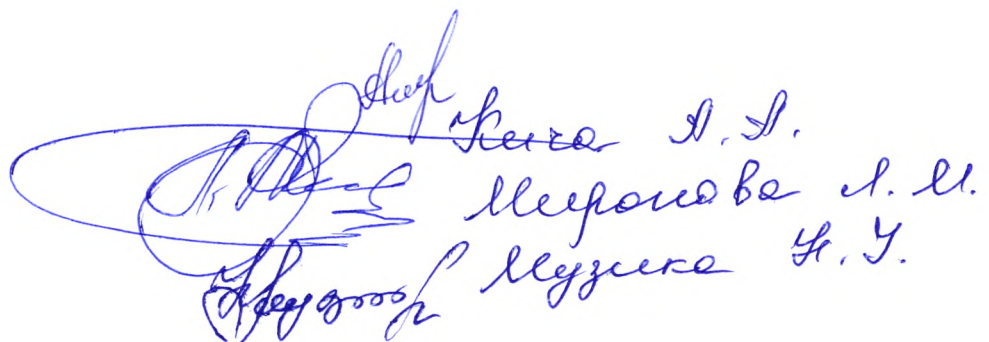 Кича А. А.
Миронова Л. М.
Музика Н. У.